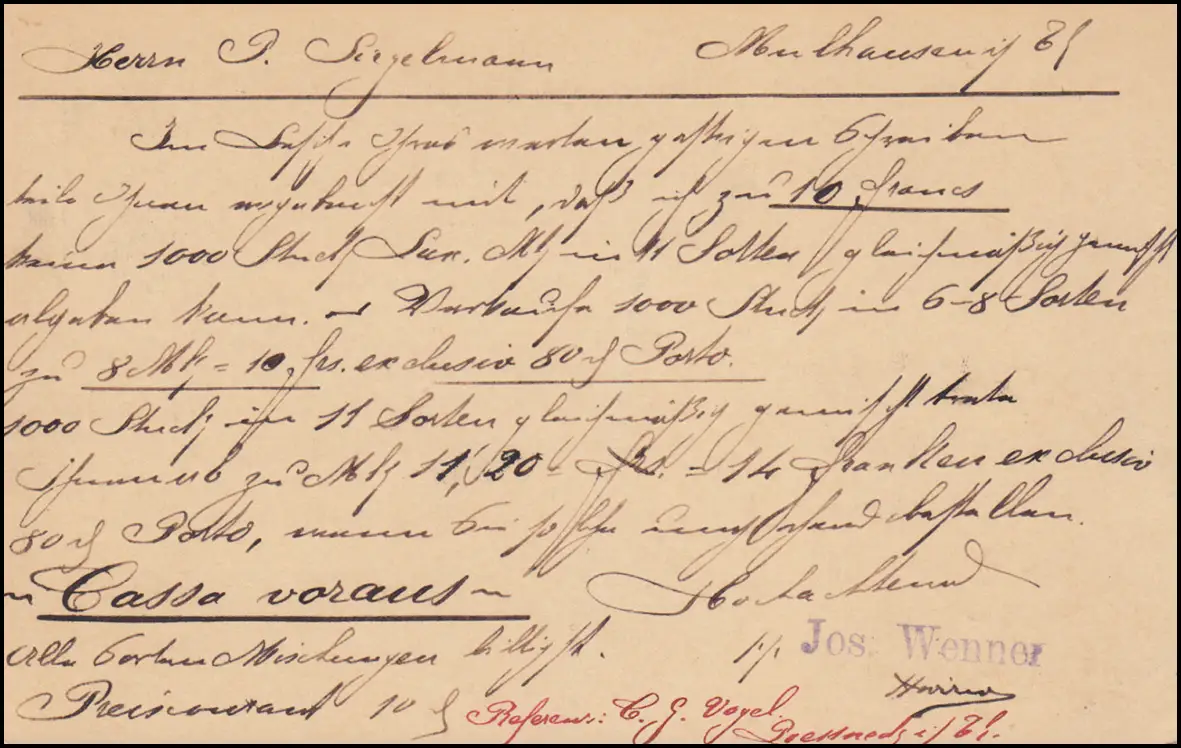 Herrn P. Siegelmann Mulhausen i/ Th
Im Besitze Ihres werten gestrigen Schreiben
teile Ihnen ergebenst mit, daß ich zu 10 francs
keine 1000 Stück Lux. Mk in 11 Sorten gleichmäßig gemischt
abgeben kann. Verkaufe 1000 Stück in 6-8 Sorten
zu 8 Mk = 10 frs. exclusiv 80 ₰ Porto.
1000 Stück in 11 Sorten gleichmäßig gemischt trete
Ihnen ab zu Mk 11,20 = 14 Franken exclusiv
80 ₰ Porto, wenn Sie solche umgehend bestellen.
Cassa voraus Hochachtend
Alle Sorten Mischungen billigst. Jos. Wenner
Preiscourant 10 ₰ Referenz: C. G. Vogel.
Poessneck i/ Th.